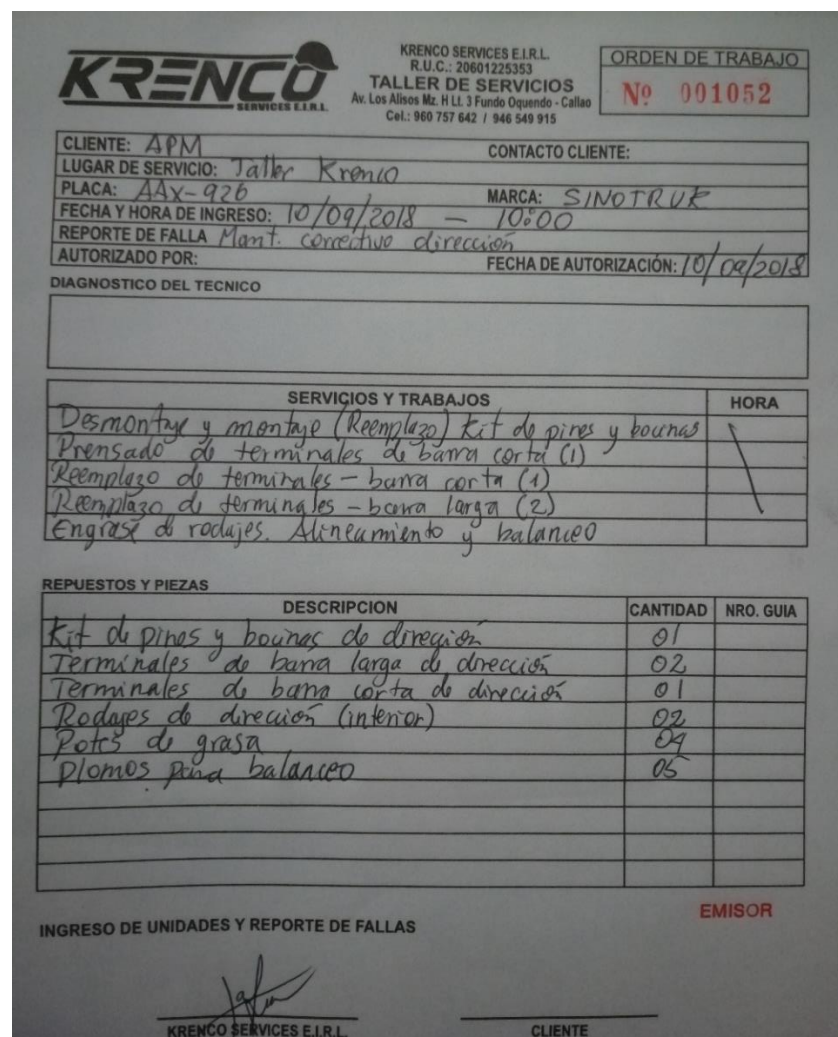 KRENCO
SERVICES E.I.R.L.
KRENCO SERVICES E.I.R.L.
R.U.C.: 20601225353
TALLER DE SERVICIOS
Av. Los Alisos Mz. H Lt. 3 Fundo Oquendo - Callao
Cel.: 960 757 642 / 946 549 915
ORDEN DE TRABAJO
Nº 001052
CLIENTE: APM CONTACTO CLIENTE:
LUGAR DE SERVICIO: Taller Krenco
PLACA: AAX-926 MARCA: SINOTRUK
FECHA Y HORA DE INGRESO: 10/09/2018 — 10:00
REPORTE DE FALLA Mant. correctivo dirección
AUTORIZADO POR: FECHA DE AUTORIZACIÓN: 10/09/2018
DIAGNOSTICO DEL TECNICO
SERVICIOS Y TRABAJOS HORA
Desmontaje y montaje (Reemplazo) Kit de pines y bocinas
Prensado de terminales de barra corta (1)
Reemplazo de terminales - barra corta (1)
Reemplazo de terminales - barra larga (2)
Engrase de rodajes. Alineamiento y balanceo
REPUESTOS Y PIEZAS
DESCRIPCION CANTIDAD NRO. GUIA
Kit de pines y bocinas de dirección 01
Terminales de barra larga de dirección 02
Terminales de barra corta de dirección 01
Rodajes de dirección (interior) 02
Potes de grasa 04
Plomos para balanceo 05
EMISOR
INGRESO DE UNIDADES Y REPORTE DE FALLAS
KRENCO SERVICES E.I.R.L. CLIENTE